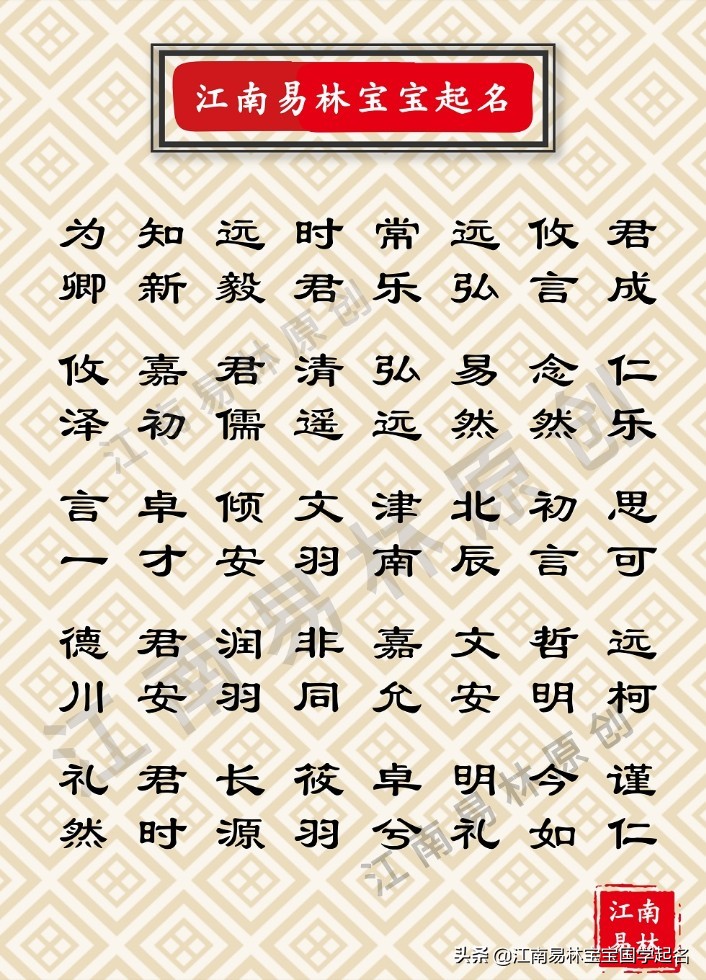 江南易林宝宝起名
为 知 远 时 常 远 攸 君
卿 新 毅 君 乐 弘 言 成
攸 嘉 君 清 弘 易 念 仁
泽 初 儒 遥 远 然 然 乐
言 卓 倾 文 津 北 初 思
一 才 安 羽 南 辰 言 可
德 君 润 非 嘉 文 哲 远
川 安 羽 同 允 安 明 柯
礼 君 长 筱 卓 明 今 谨
然 时 源 羽 兮 礼 如 仁
江南易林原创
江南易林原创
江南易林原创
江南
易林
头条 @江南易林宝宝国学起名